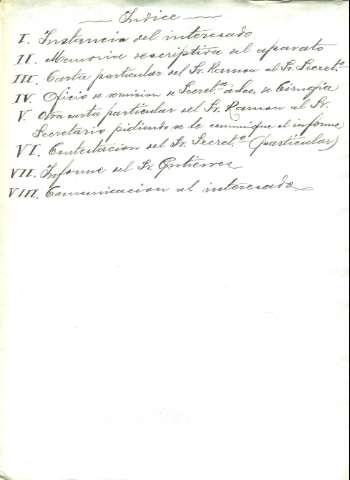 Indice
I. Instancia del interesado
II. Memoria descriptiva del aparato
III. Carta particular del Sr. Ramon al Sr. Secret.º
IV. Oficio de remision de Secret.ª á la S. de Cirugía
V. Otra carta particular del Sr. Ramon al Sr.
Secretario pidiendo se le comunique el informe
VI. Contestacion del Sr. Secret.º (particular)
VII. Informe del Sr. Gutierrez
VIII. Comunicacion al interesado